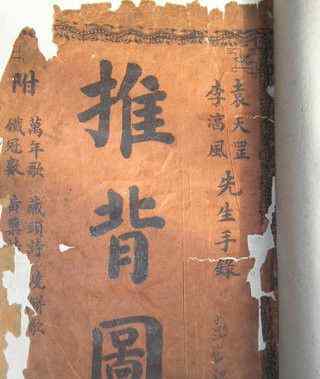 袁天罡
李淳風
先生手錄
推背圖
附
萬年歌 藏頭詩
鐵冠數